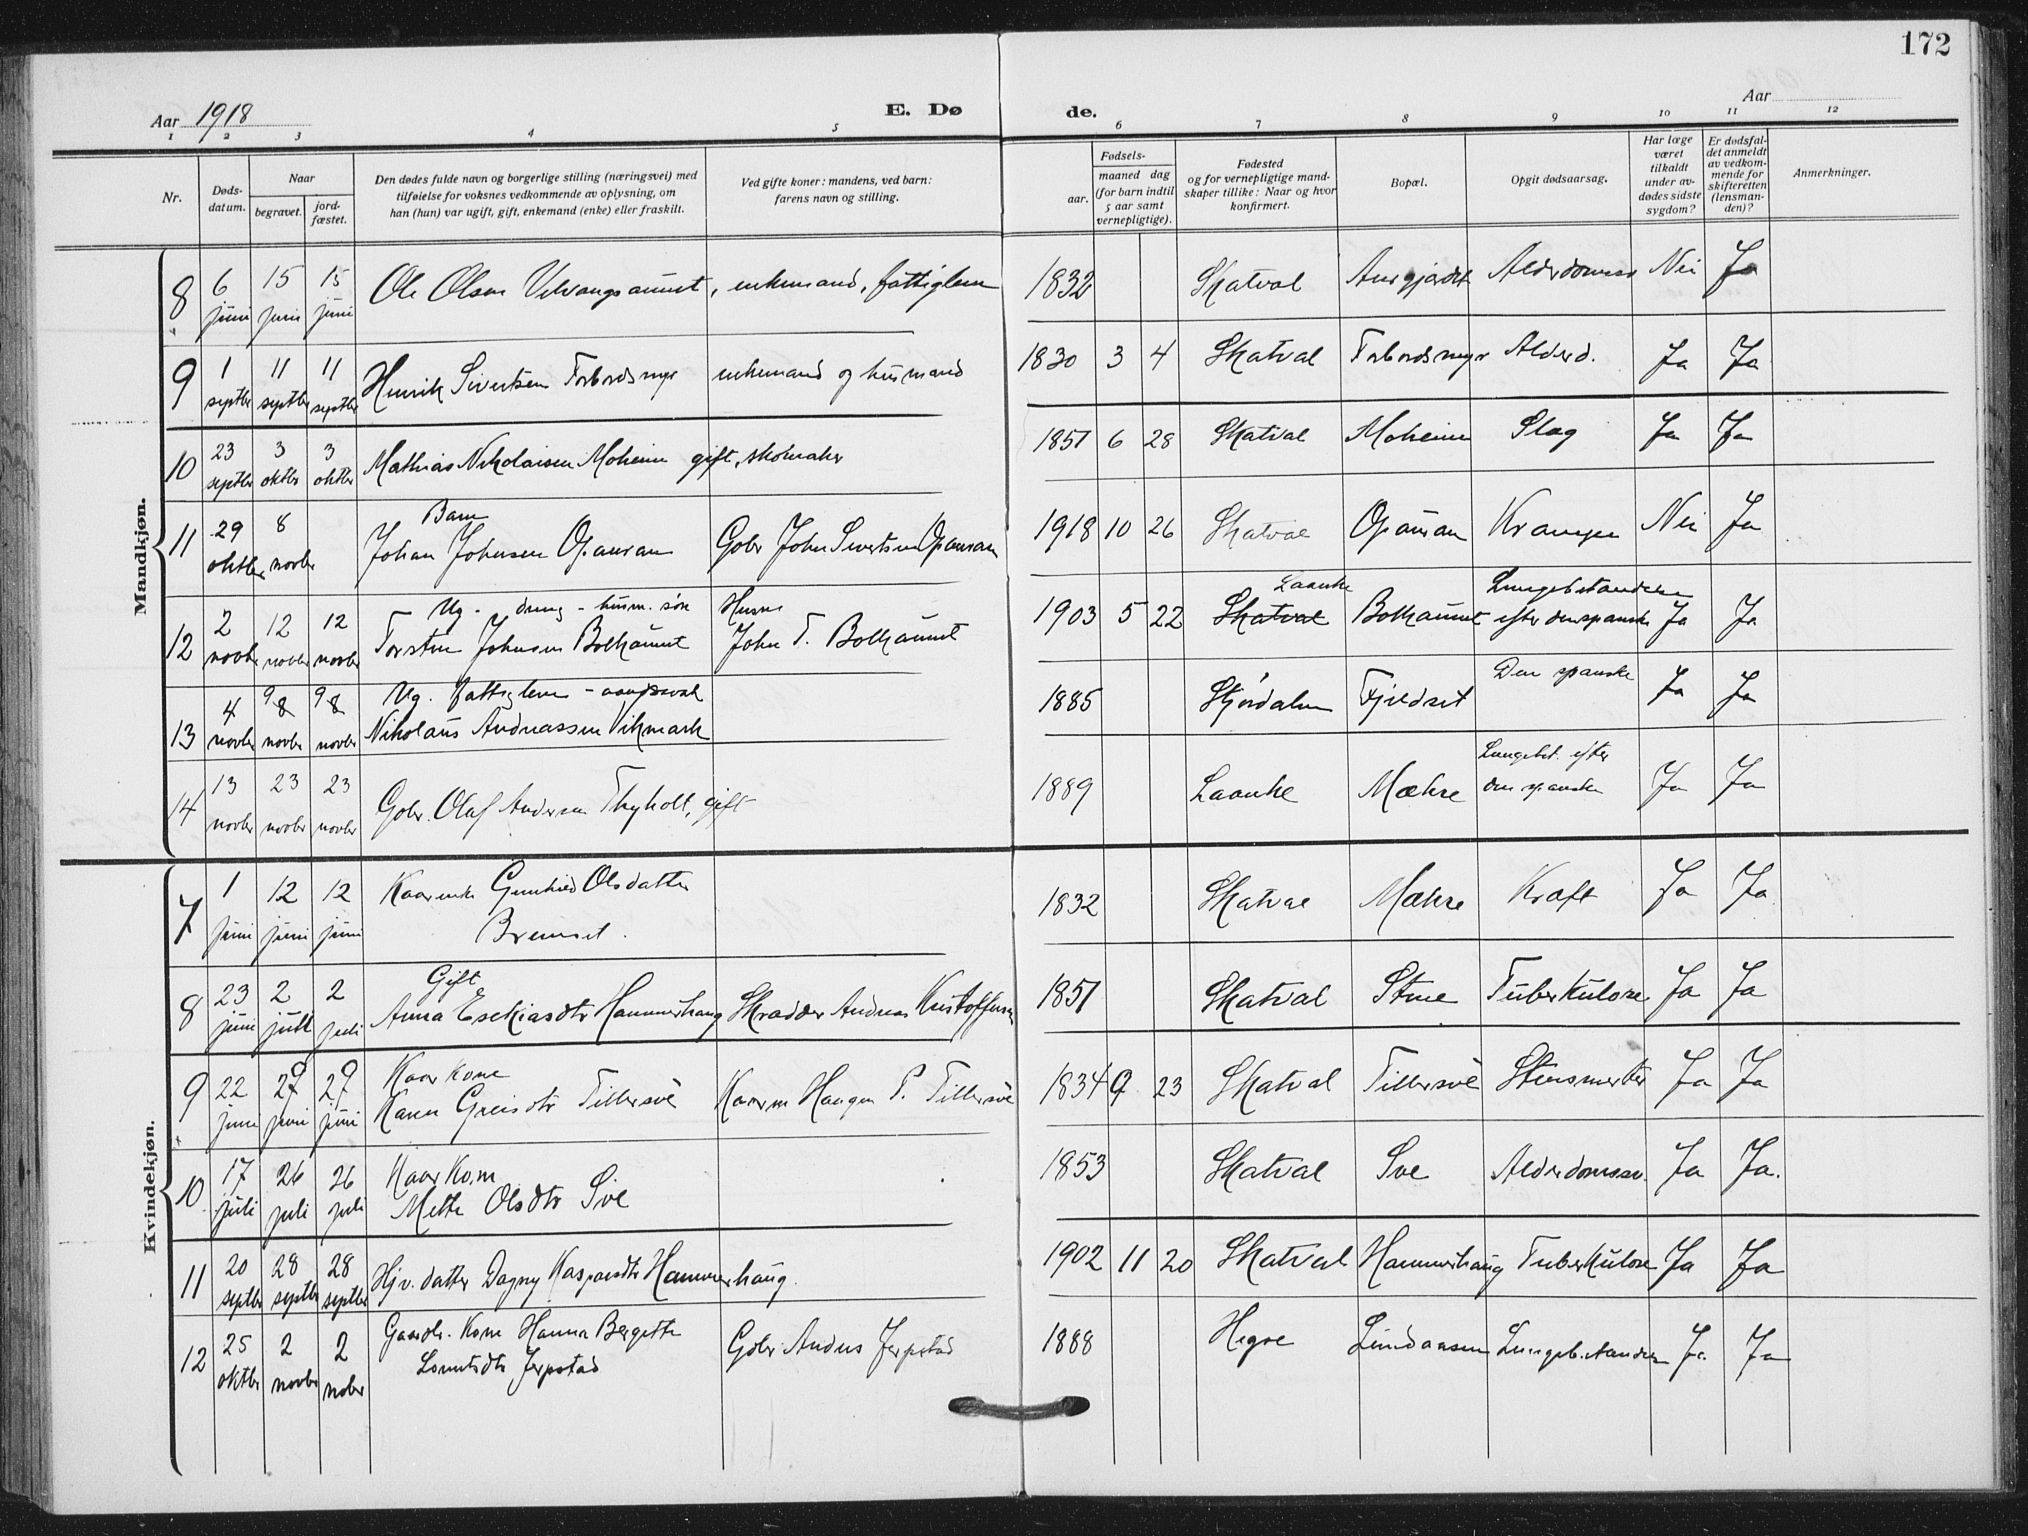 172
Aar 1918
E. Dø de.
Aar
1 2 3 4 5 6 7 8 9 10 11 12
Nr.
Døds-
datum.
Naar
begravet.
jord-
fæstet.
Den dødes fulde navn og borgerlige stilling (næringsvei) med
tilføielse for voksnes vedkommende av oplysning, om
han (hun) var ugift, gift, enkemand (enke) eller fraskilt.
Ved gifte koner: mandens, ved barn:
farens navn og stilling.
Fødsels-
aar.
maaned dag
(for barn indtil
5 aar samt
vernepligtige).
Fødested
og for vernepligtige mand-
skaper tillike: Naar og hvor
konfirmert.
Bopæl.
Opgit dødsaarsag.
Har læge
været
tilkaldt
under av-
dødes sidste
sygdom?
Er dødsfal-
det anmeldt
av vedkom-
mende for
skifteretten
(lensman-
den)?
Anmerkninger.
Mandkjøn.
8 6 juni 15 juni 15 juni Ole Olsen Velvangsaunet, enkemand, fattiglem 1832 Skatval Aurgjerdet Alderdomssv Nei Ja
9 1 septbr 11 septbr 11 septbr Henrik Sivertsen Forbordsmyr enkemand og husmand 1830 3 4 Skatval Forbordsmyr Alderd. Ja Ja
10 23 septbr 3 oktbr 3 oktbr Mathias Nikolaisen Moheim gift, skomaker 1851 6 28 Skatval Moheim Slag Ja Ja
Barn
11 29 oktbr 8 novbr Johan Johnsen Opauran Gbr John Sivertsen Opauran 1918 10 26 Skatval Opauran Krampe Nei Ja
Ug. dreng - husm. søn Husm Laanke Lungebetændelse
12 2 novbr 12 novbr 12 novbr Torsten Johnsen Bolkaunet John T. Bolkaunet 1903 5 22 Skatval Bolkaunet efter den spanske Ja Ja
Ug. fattiglem - aandssvak Den spanske
13 4 novbr 9 8 novbr 9 8 novbr Nikolaus Andreassen Vikmark 1885 Stjørdalen Fjeldset Ja Ja
Lungebet. efter
14 13 novbr 23 novbr 23 novbr Gbr. Olaf Andersen Thyholt, gift 1889 Laanke Mæhre den spanske Ja Ja
Kvindekjøn.
7 1 juni 12 juni 12 juni Kaarenke Gunhild Olsdatter
Bremset. 1832 Skatval Mæhre Kræft Ja Ja
Gift
8 23 juni 2 juli 2 juli Anna Esekiasdtr Hammerhaug Skrædder Andreas Kristoffersen 1851 Skatval Stene Tuberkulose Ja Ja
Kaarkone
9 22 juni 29 juni 29 juni Karen Greisdtr Tillersve Kaarm Haagen P. Tillersve 1834 9 23 Skatval Tillersve Stensmerter Ja Ja
Kaarkone
10 17 juli 26 juli 26 juli Mette Olsdtr Sve 1853 Skatval Sve Alderdomssv. Ja Ja.
11 20 septbr 28 septbr 28 septbr Hjv. datter Dagny Kaspersdtr Hammerhaug. 1902 11 20 Skatval Hammerhaug Tuberkulose Ja Ja
12 25 oktbr 2 novbr 2 nobr Gaardbr. kone Hanna Bergitte Gbr Anders Jerpstad 1888 Hegre Lungebetændelse Ja Ja
Jerpstad